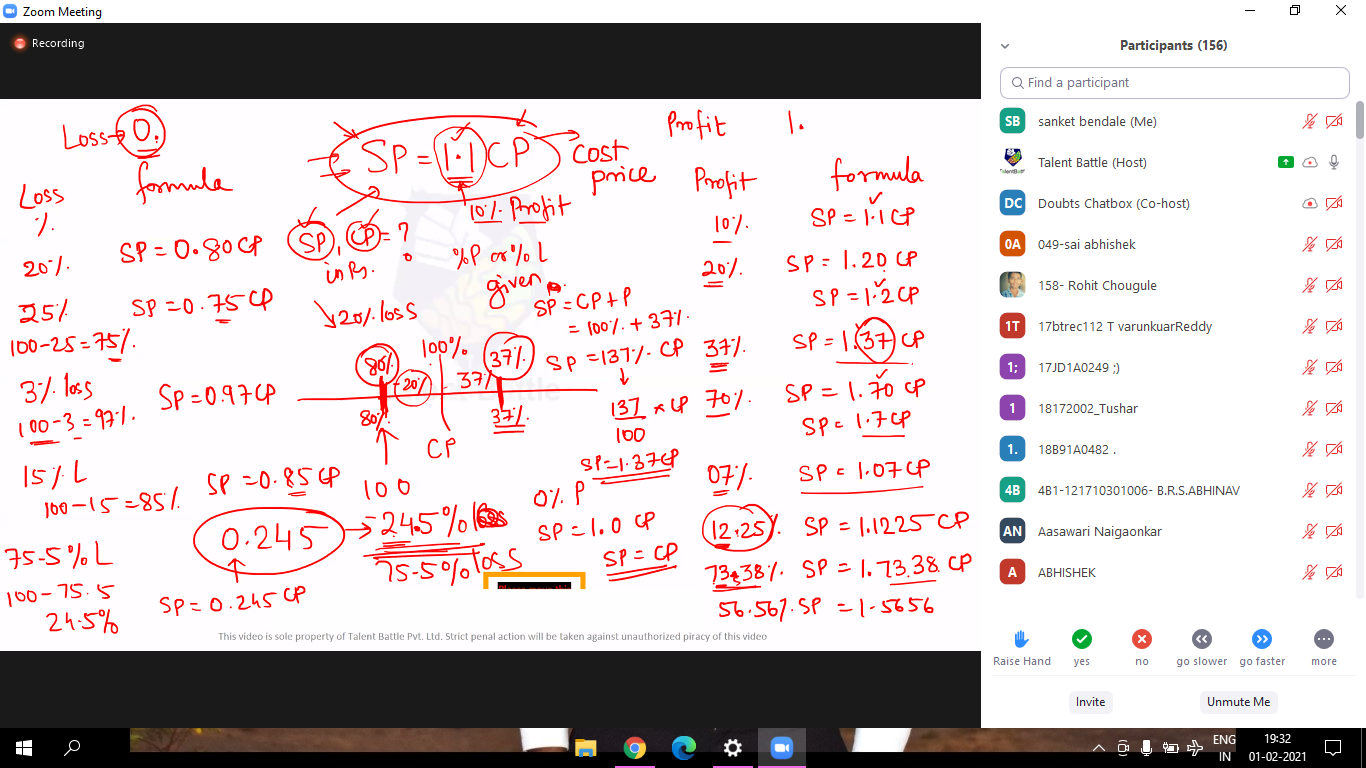 Zoom Meeting
Recording
Loss→ 0.
formula
Loss
%
20%. SP = 0.80CP
25% SP = 0.75 CP
100-25=75%.
3% loss SP=0.97CP
100-3=97%.
15% L SP = 0.85 CP
100-15=85%
75.5% L
100-75.5
24.5%
0.245
SP=0.245 CP
SP = 1.1 CP cost price
10% Profit
SP, CP = ?
in Rs.
%P or % L
given
20% loss
SP = CP + P
= 100% + 37%.
SP = 137%. CP
137/100 × CP
SP=1.37CP
80% 100% 37%
-20% 37%
80% CP 37%
100
-24.5% loss
75.5% loss
0% P
SP = 1.0 CP
SP = CP
Profit 1.
Profit formula
10% SP = 1.1 CP
20% SP = 1.20 CP
SP = 1.2 CP
37% SP = 1.37 CP
70% SP = 1.70 CP
SP = 1.7CP
07% SP = 1.07CP
12.25% SP = 1.1225 CP
73.38% SP = 1.73.38 CP
56.56%. SP = 1.5656
This video is sole property of Talent Battle Pvt. Ltd. Strict penal action will be taken against unauthorized piracy of this video
Participants (156)
Find a participant
SB sanket bendale (Me)
Talent Battle (Host)
DC Doubts Chatbox (Co-host)
0A 049-sai abhishek
158- Rohit Chougule
1T 17btrec112 T varunkuarReddy
1; 17JD1A0249 ;)
1 18172002_Tushar
1. 18B91A0482 .
4B 4B1-121710301006- B.R.S.ABHINAV
AN Aasawari Naigaonkar
A ABHISHEK
Raise Hand yes no go slower go faster more
Invite Unmute Me
ENG
IN
19:32
01-02-2021